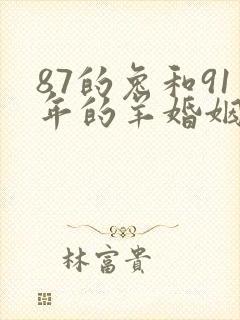 87的兔和91
年的羊婚姻
林富貴